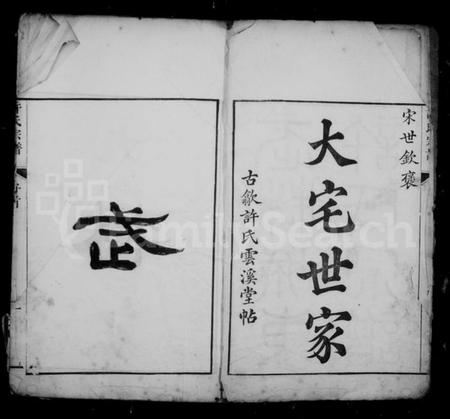 宋世欽褒
大宅世家
古歙許氏雲溪堂帖
武
許氏宗譜
FamilySearch